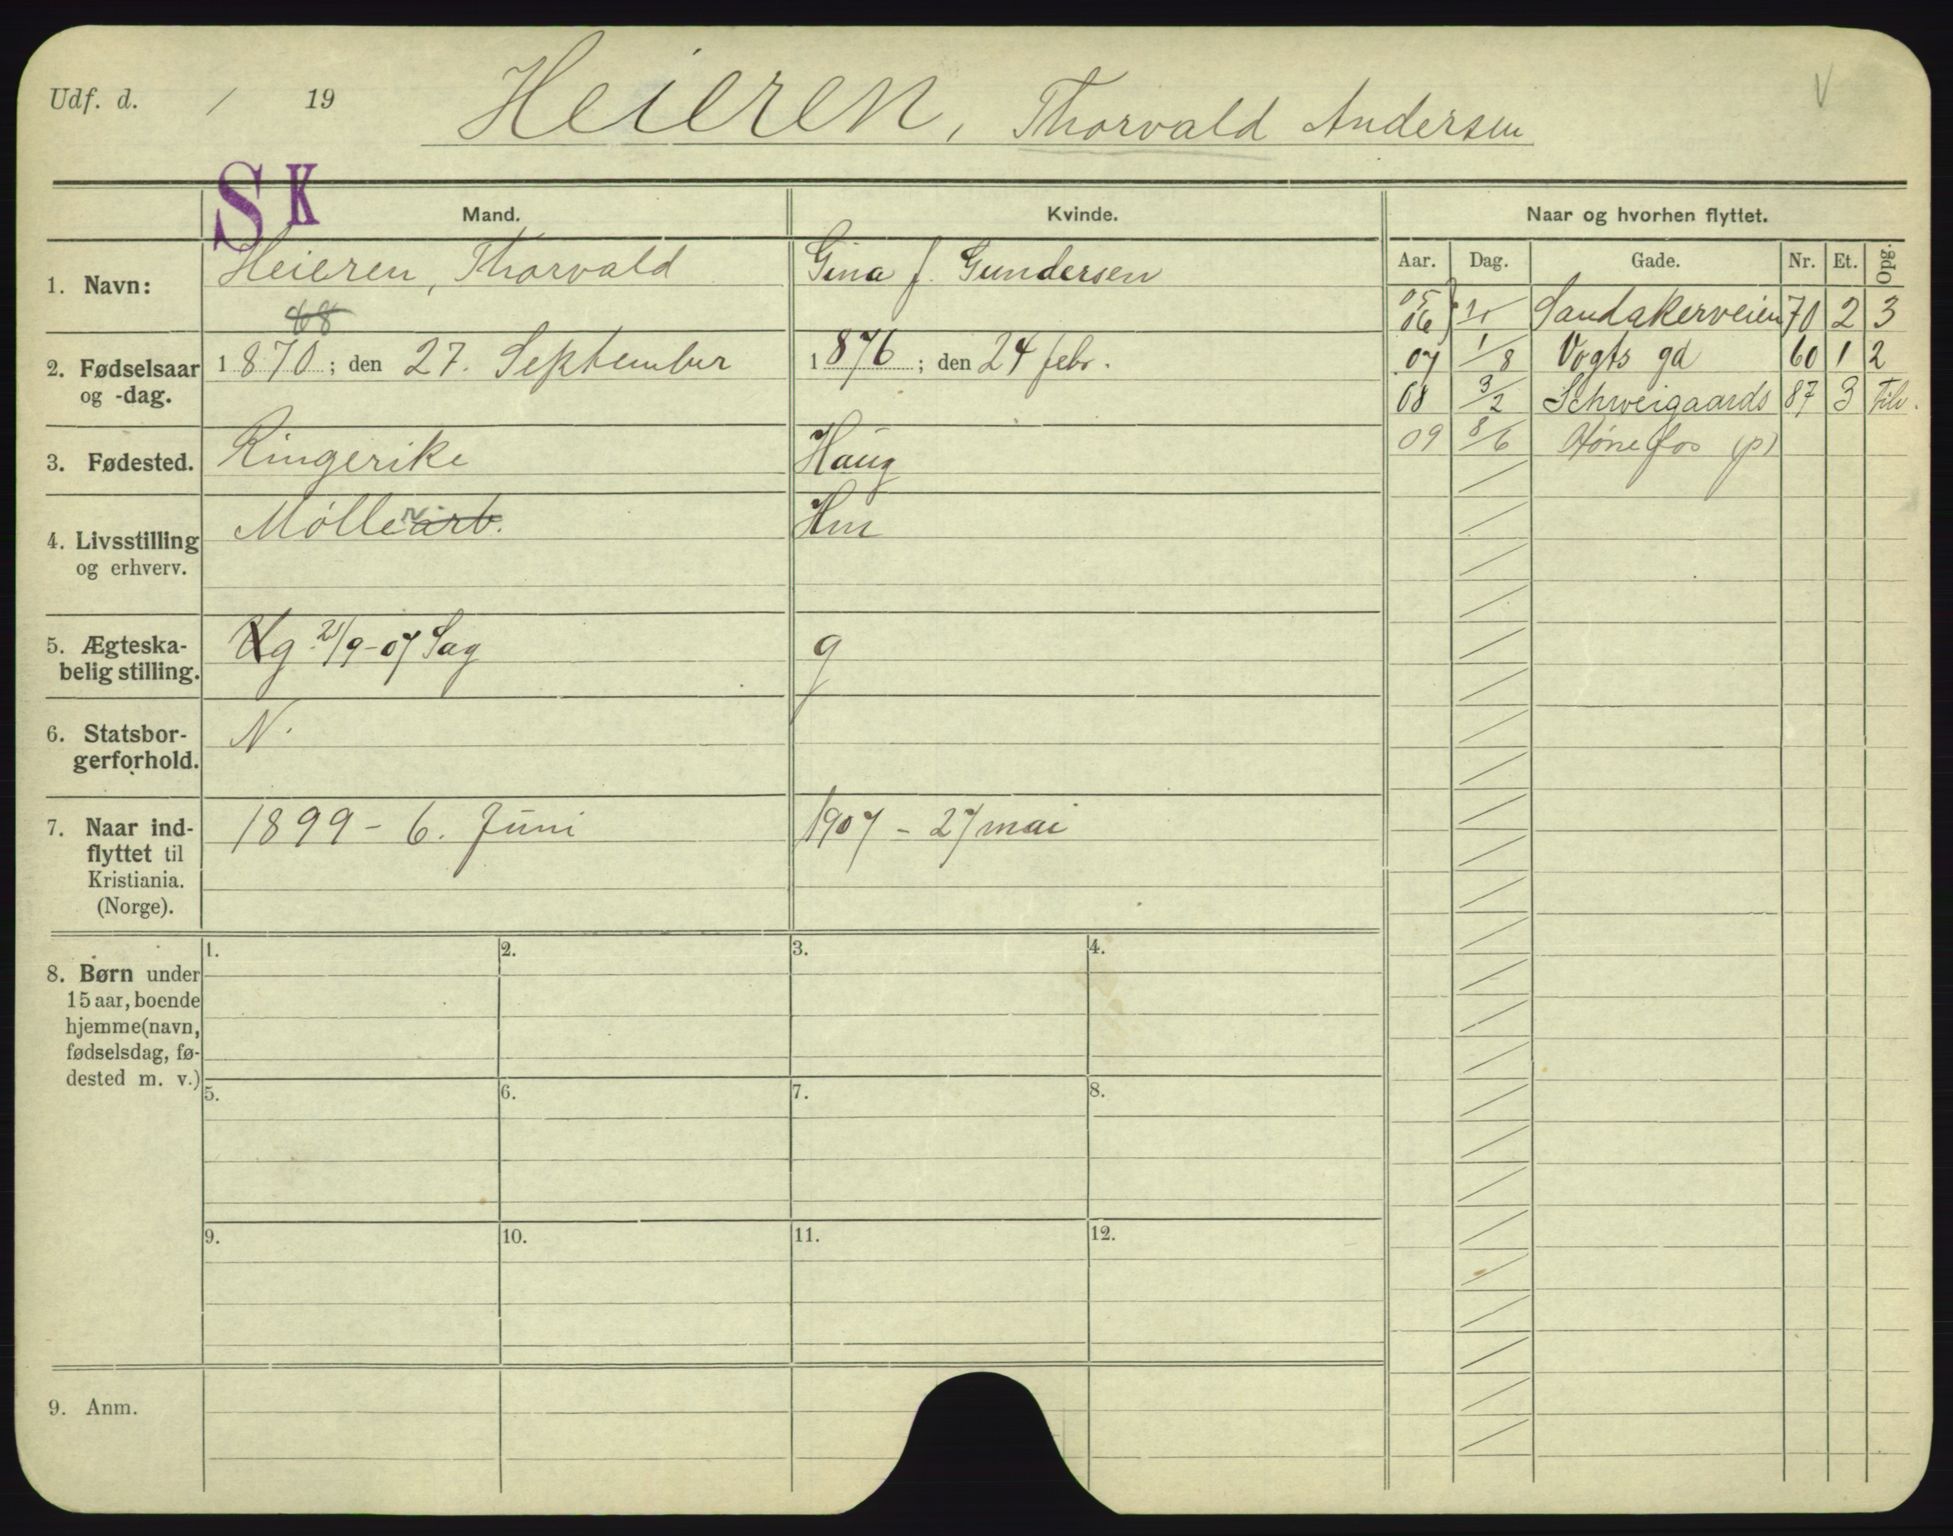 Udf. d. / 19
Heieren, Thorvald Andersen
V
SK
Mand.
Kvinde.
Naar og hvorhen flyttet.
1. Navn:
Heieren, Thorvald
Gina f. Gundersen
2. Fødselsaar og -dag.
68
1870; den 27. September
1876; den 24 febr.
3. Fødested.
Ringerike
Haug
4. Livsstilling og erhverv.
Møllearb.
Hm
5. Ægteska-
belig stilling.
g 21/9-07 Sag
g
6. Statsbor-
gerforhold.
N.
7. Naar ind-
flyttet til
Kristiania.
(Norge).
1899 - 6. Juni
1907 - 27 mai
8. Børn under
15 aar, boende
hjemme (navn,
fødselsdag, fø-
dested m. v.)
1. 2. 3. 4.
5. 6. 7. 8.
9. 10. 11. 12.
9. Anm.
Aar. Dag. Gade. Nr. Et. Opg.
05
06 Sandakerveien 70 2 3
07 1/8 Vogts gd 60 1 2
08 3/2 Schweigaards 87 3 Tilv.
09 8/6 Hønefos (p)